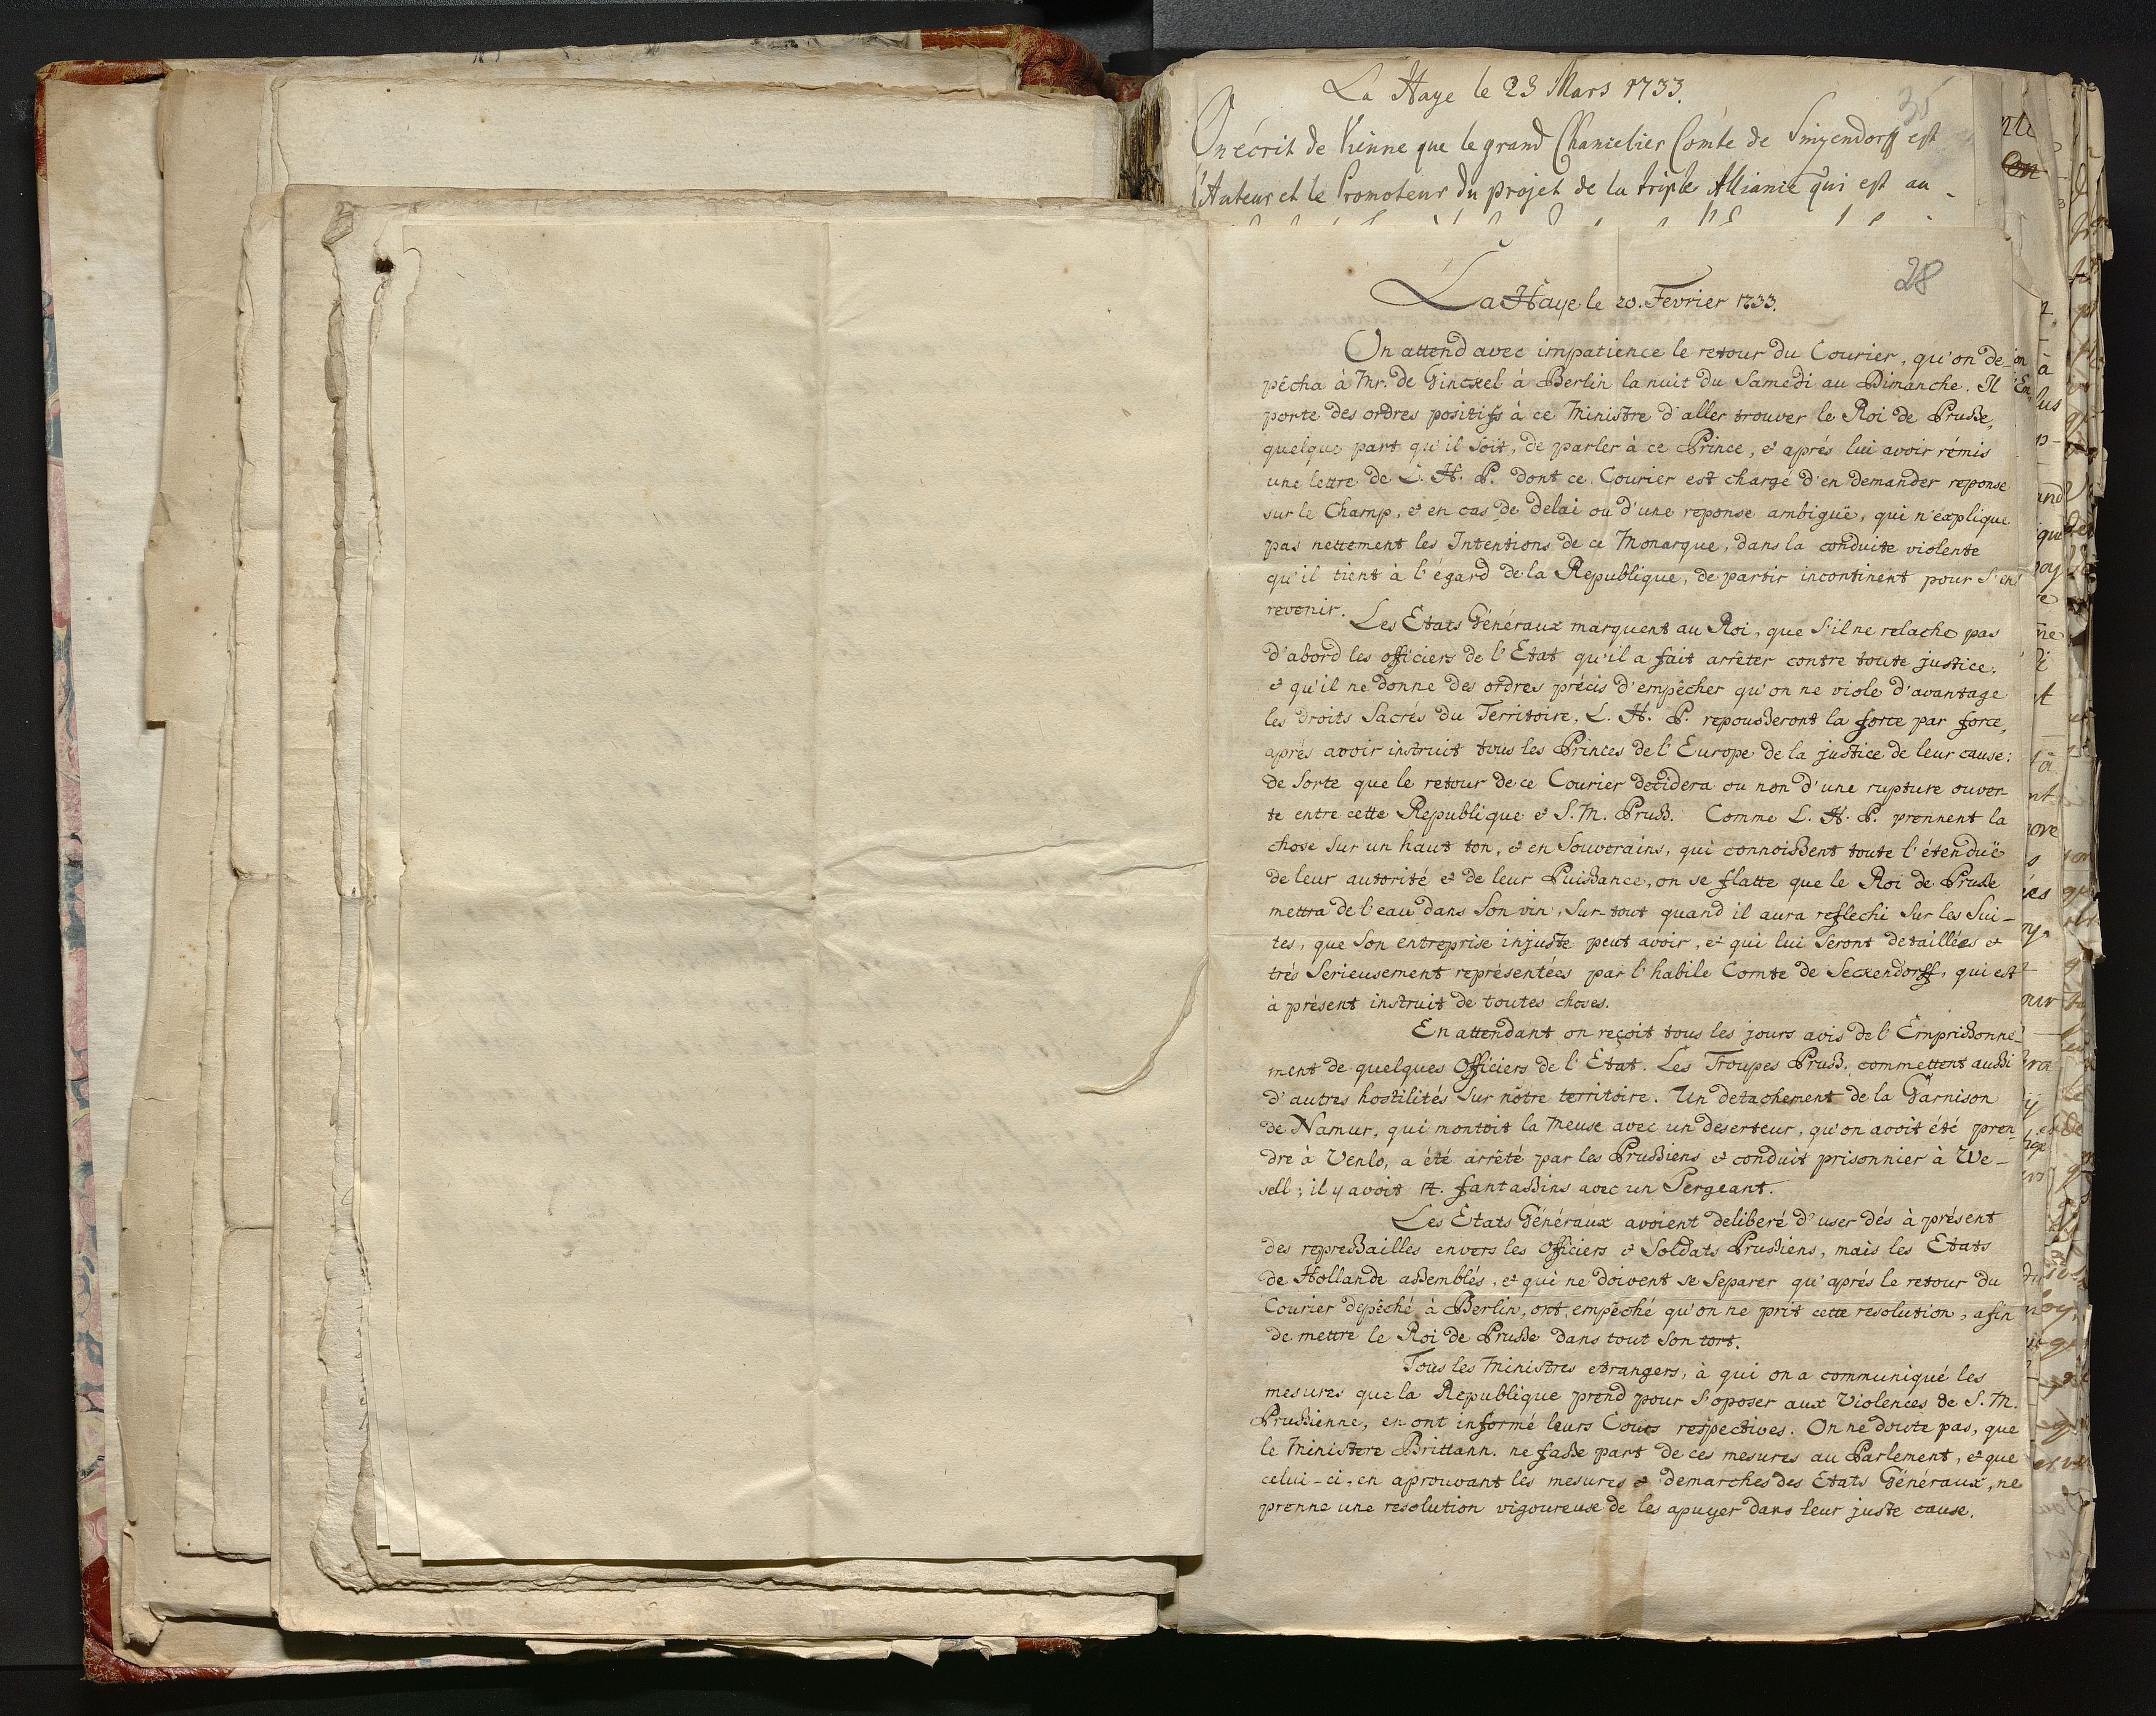 La Haye le 23 Mars 1733.
35
On écrit de Vienne que le grand Chancelier Comte de Sinzendorff est
l'Auteur et le Promoteur du projet de la triple Alliance qui est au-
28
La Haye le 20. Fevrier 1733.
On attend avec impatience le retour du Courier, qu'on de-
pêcha à Mr. de Ginckel à Berlin la nuit du Samedi au Dimanche. Il
porte des ordres positifs à ce Ministre d'aller trouver le Roi de Prusse,
quelque part qu'il soit, de parler à ce Prince, & aprés lui avoir rémis
une lettre de L. H. P. dont ce Courier est chargé d'en demander reponse
sur le Champ, & en cas de delai ou d'une reponse ambiguë, qui n'explique
pas nettement les Intentions de ce Monarque, dans la conduite violente
qu'il tient à l'égard de la Republique, de partir incontinent pour s'en
revenir.
Les Etats Généraux marquent au Roi, que s'il ne relache pas
d'abord les officiers de l'Etat qu'il a fait arrêter contre toute justice,
& qu'il ne donne des ordres précis d'empêcher qu'on ne viole d'avantage
les droits Sacrés du Territoire, L. H. P. repousseront la force par force,
aprés avoir instruit tous les Princes de l'Europe de la justice de leur cause:
de sorte que le retour de ce Courier decidera ou non d'une rupture ouver
te entre cette Republique & S. M. Pruss. Comme L. H. P. prennent la
chose sur un haut ton, & en Souverains, qui connoissent toute l'étenduë
de leur autorité & de leur Puissance, on se flatte que le Roi de Prusse
mettra de l'eau dans son vin, sur-tout quand il aura reflechi sur les Sui-
tes, que son entreprise injuste peut avoir, & qui lui seront detaillées &
trés serieusement représentées par l'habile Comte de Seckendorff, qui est
à présent instruit de toutes choses.
En attendant on reçoit tous les jours avis de l'Emprisonne-
ment de quelques Officiers de l'Etat. Les Troupes Pruss. commettent aussi
d'autres hostilités sur nôtre territoire. Un detachement de la Garnison
de Namur, qui montoit la Meuse avec un deserteur, qu'on avoit été pren-
dre à Venlo, a été arrêté par les Prussiens & conduit prisonnier à We-
sell; il y avoit 14. fantassins avec un Sergeant.
Les Etats Généraux avoient deliberé d'user dés à présent
des repressailles envers les officiers & Soldats Prussiens, mais les Etats
de Hollande assemblés, & qui ne doivent se separer qu'aprés le retour du
Courier depêché à Berlin, ont empêché qu'on ne prit cette resolution, afin
de mettre le Roi de Prusse dans tout son tort.
Tous les Ministres etrangers, à qui on a communiqué les
mesures que la Republique prend pour s'oposer aux Violences de S. M.
Prussienne, en ont informé leurs Cours respectives. On ne doute pas, que
le Ministere Brittann. ne fasse part de ces mesures au Parlement, & que
celui-ci, en aprouvant les mesures & demarches des Etats Généraux, ne
prenne une resolution vigoureuse de les apuyer dans leur juste cause.